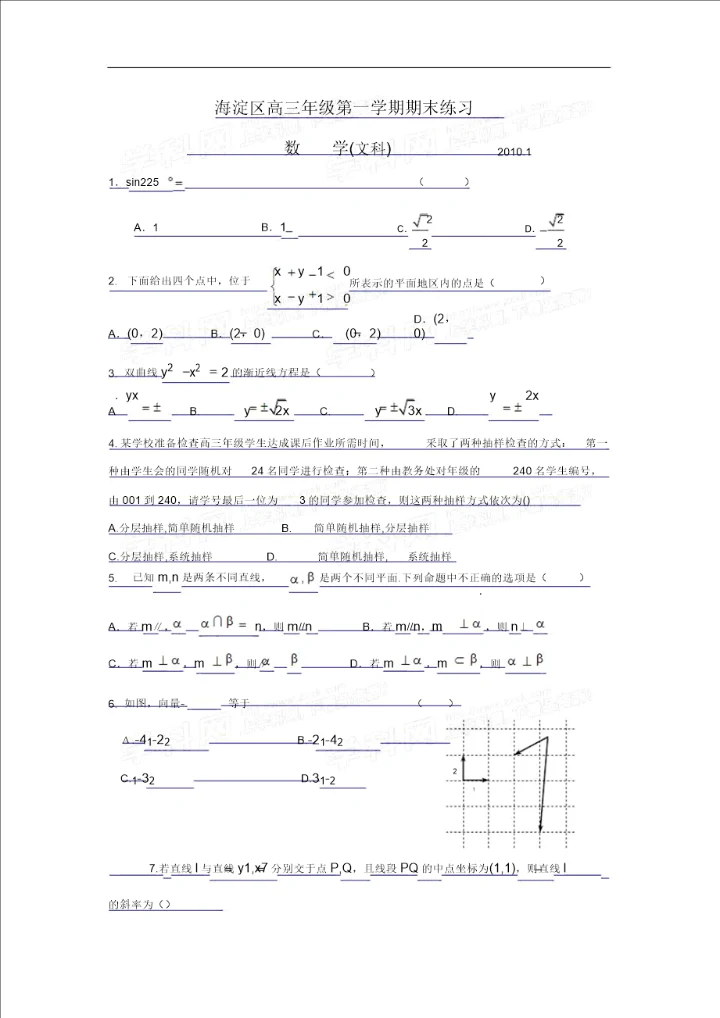 海淀区高三年级第一学期期末练习
数 学(文科) 2010.1
1. sin225 °= ( )
A. 1 B. 1− C. √2/2 D. −√2/2
2. 下面给出四个点中，位于 { x + y − 1 < 0 x − y + 1 > 0 所表示的平面地区内的点是（ ）
A. (0，2) B. (2−，0) C. (0−，2) D. (2，0)
3. 双曲线 y² − x² = 2 的渐近线方程是（ ）
A. yx = ± B. y = ± √2x C. y = ± √3x D. y = ± 2x
4.某学校准备检查高三年级学生达成课后作业所需时间， 采取了两种抽样检查的方式： 第一
种由学生会的同学随机对 24 名同学进行检查；第二种由教务处对年级的 240 名学生编号，
由 001 到 240，请学号最后一位为 3 的同学参加检查，则这两种抽样方式依次为()
A.分层抽样,简单随机抽样 B. 简单随机抽样,分层抽样
C.分层抽样,系统抽样 D. 简单随机抽样, 系统抽样
5. 已知 m,n 是两条不同直线， α , β 是两个不同平面.下列命题中不正确的选项是（ ）
A．若 m // , α α ∩ β = n，则 m//n B．若 m//n，m ⊥ α ，则 n⊥ α
C．若 m ⊥ α，m ⊥ β，则 α β D．若 m ⊥ α，m ⊂ β，则 α ⊥ β
6. 如图，向量- 等于 ( )
A -41-22 B -21-42
C.1-32 D.31-2
2
1
7.若直线 l 与直线 y1,x7 分别交于点 P,Q，且线段 PQ 的中点坐标为(1,1)，则直线 l
的斜率为()